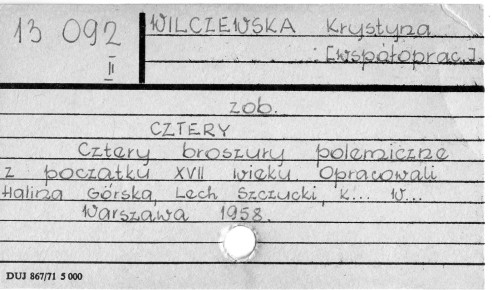 13 092
II
WILCZEWSKA Krystyna
[współoprac.]
zob.
CZTERY
Cztery broszury polemiczne
z początku XVII wieku. Opracowali
Halina Górska, Lech Szczucki, K... W...
Warszawa 1958.
DUJ 867/71 5 000